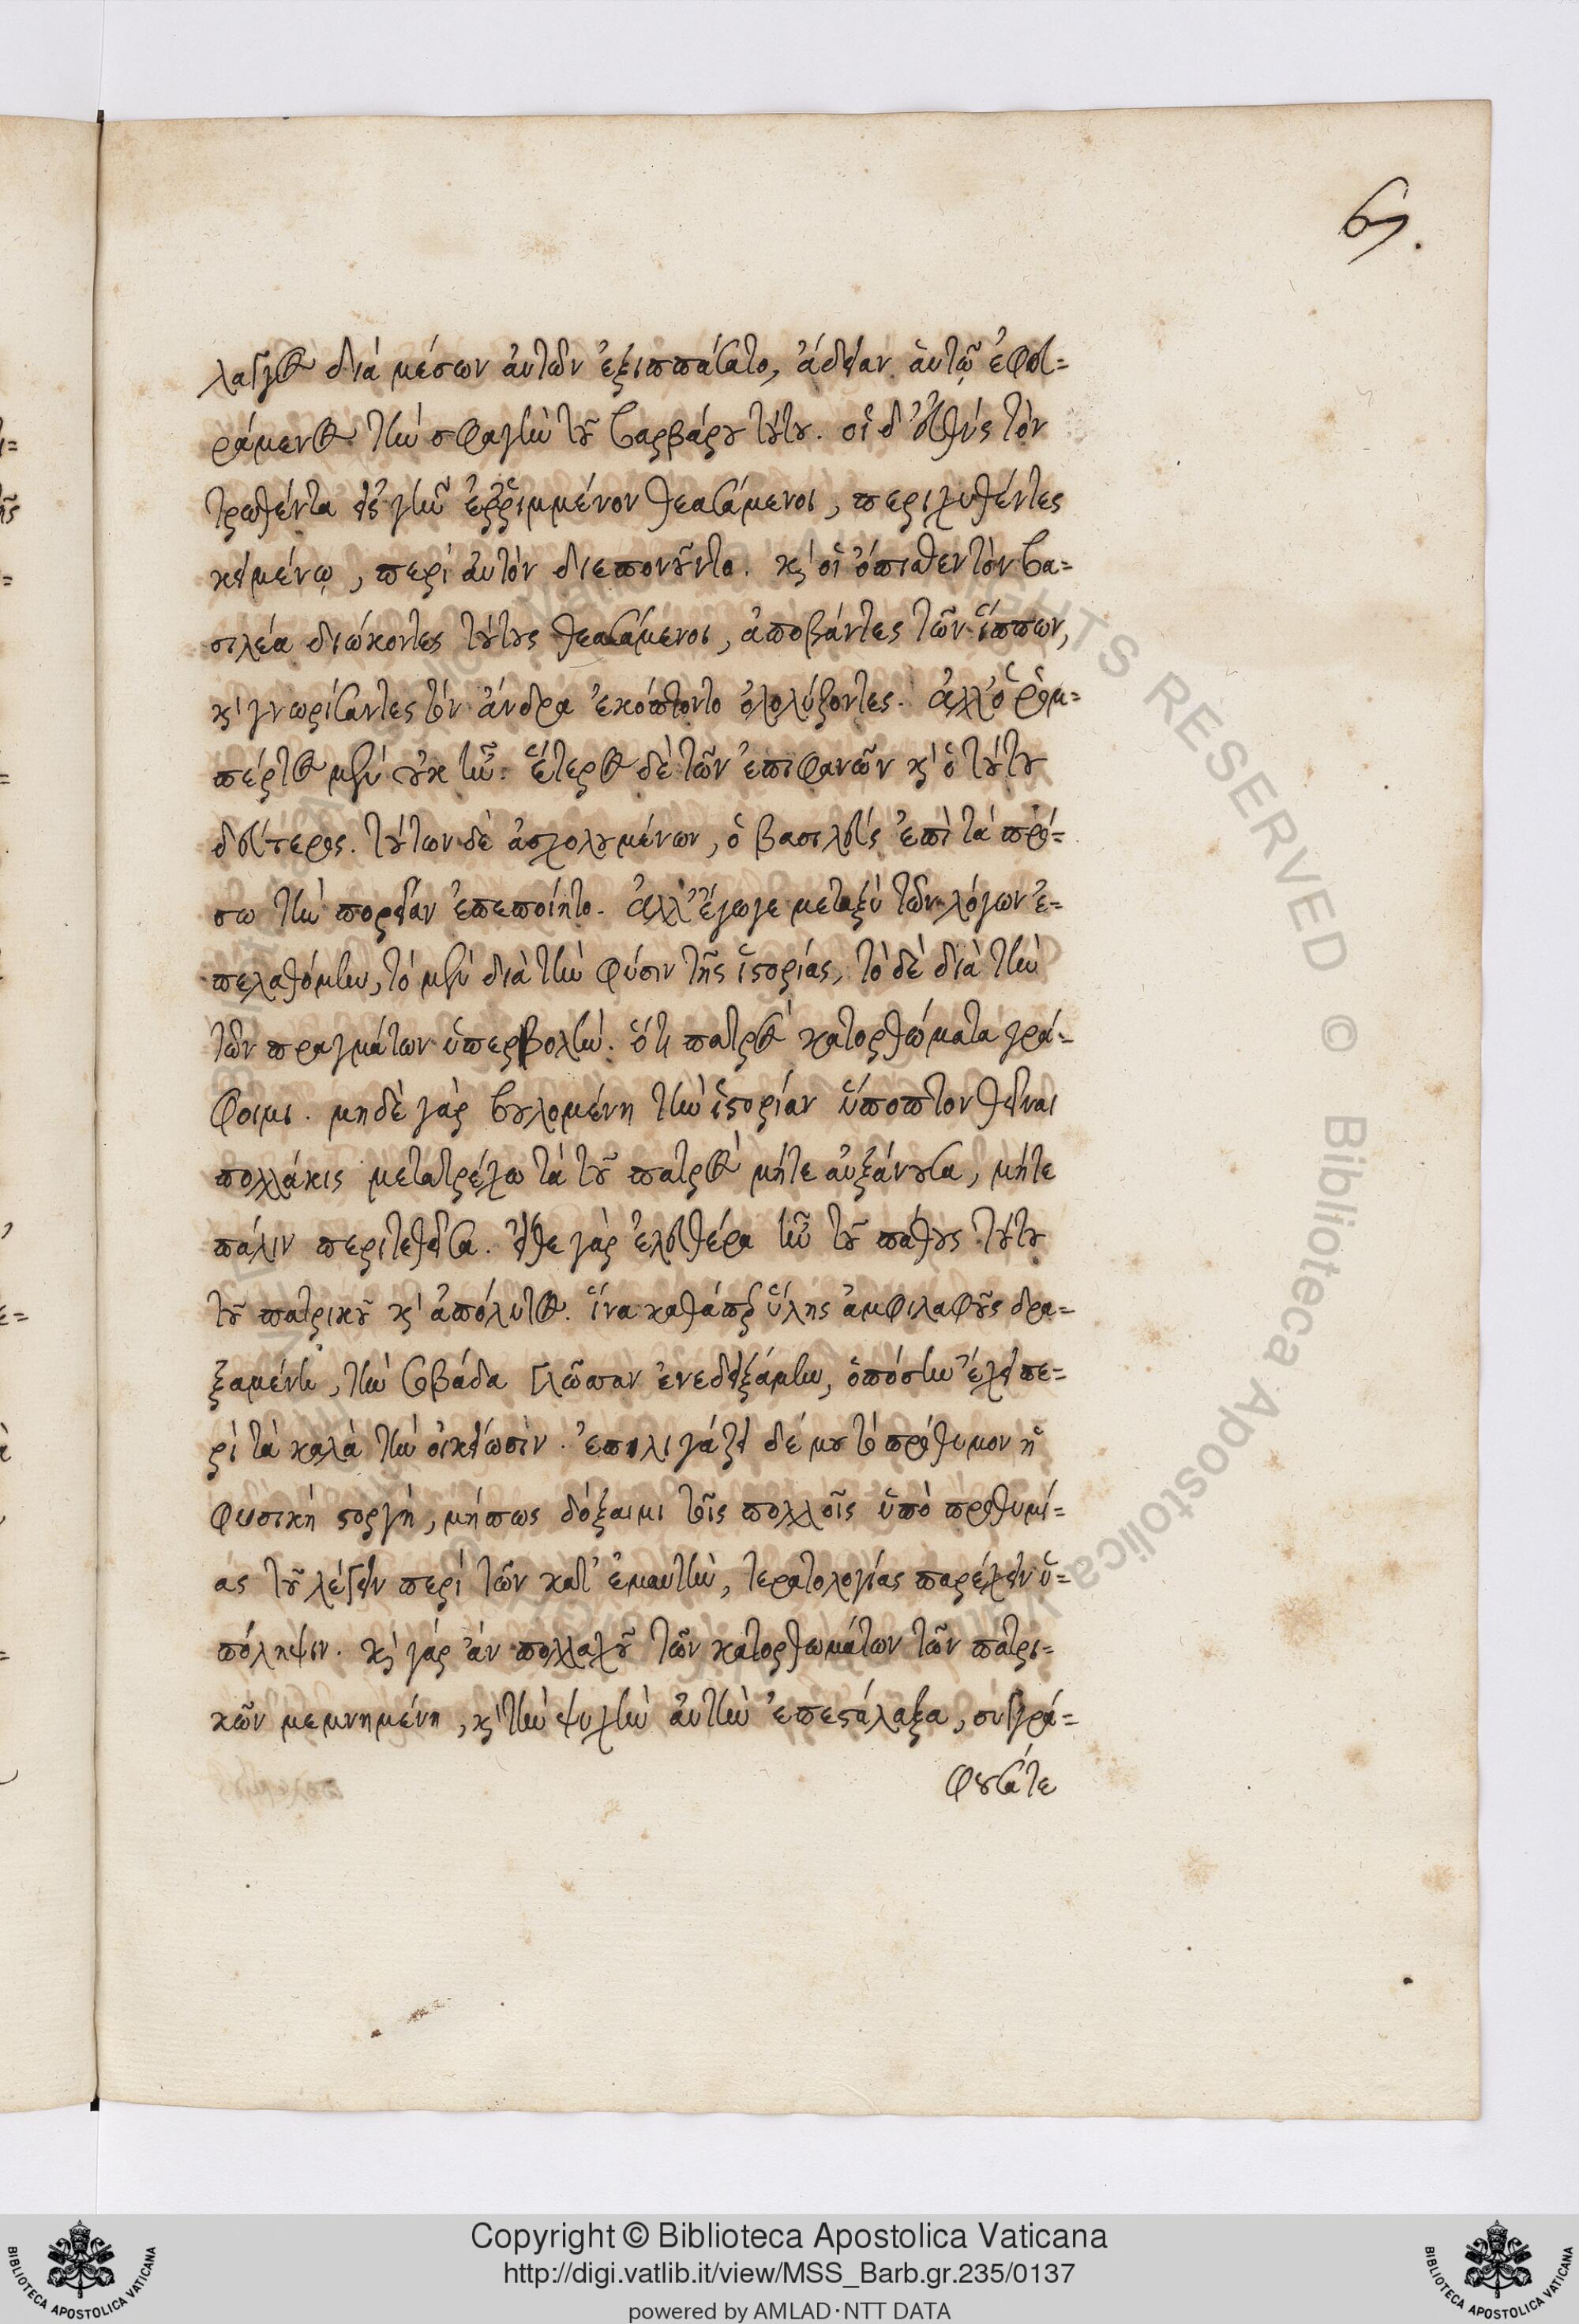 67.
λαγγος διὰ μέσων αὐτῶν ἐξιππάσατο, ἄδειαν αὐτῷ ἐφευ=
ράμενος τὴν σφαγὴν τοῦ βαρβάρου τούτου. οἱ δ' εὐθὺς τὸν
τρωθέντα εἰς γῆν ἐῤῥιμμένον θεασάμενοι, περιχυθέντες
κειμένῳ, περὶ αὐτὸν διεπονοῦντο. καὶ οἱ ὄπισθεν τὸν βα=
σιλέα διώκοντες τούτους θεασάμενοι, ἀποβάντες τῶν ἵππων,
καὶ γνωρίσαντες τὸν ἄνδρα ἐκόπτοντο ὀλολύζοντες. ἀλλ' ὁ ῥομ=
πέρτος μὲν οὐκ ἦν. ἕτερος δὲ τῶν ἐπιφανῶν καὶ ὁ τούτου
δεύτερος. τούτων δὲ ἀσχολουμένων, ὁ βασιλεὺς ἐπὶ τὰ πρό=
σω τὴν πορείαν ἐπεποίητο. ἀλλ' ἔγωγε μεταξὺ τῶν λόγων ἐ=
πελαθόμην, τὸ μὲν διὰ τὴν φύσιν τῆς ἱστορίας, τὸ δὲ διὰ τὴν
τῶν πραγμάτων ὑπερβολὴν. ὅτι πατρὸς κατορθώματα γρά=
φοιμι. μηδὲ γὰρ βουλομένη τὴν ἱστορίαν ὕποπτον θεῖναι
πολλάκις μετατρέχω τὰ τοῦ πατρὸς μήτε αὐξάνουσα, μήτε
πάλιν περιτεθεῖσα. εἴθε γὰρ ἐλευθέρα ἦν τοῦ πάθους τούτου
τοῦ πατρικοῦ καὶ ἀπόλυτος. ἵνα καθάπερ ὕλης ἀμφιλαφοῦς δρα=
ξαμένη, τὴν σβάδα γλῶσσαν ἐνεδειξάμην, ὁπόσην ἔχει πε=
ρὶ τὰ καλὰ τὴν οἰκείωσιν. ἐπηλυγάζει δέ μου τὸ πρόθυμον ἡ
φυσικὴ στοργὴ, μήπως δόξαιμι τοῖς πολλοῖς ὑπὸ προθυμί=
ας τοῦ λέγειν περὶ τῶν κατ' ἐμαυτὴν, τερατολογίας παρέχειν ὑ=
πόληψιν. καὶ γὰρ ἂν πολλαχοῦ τῶν κατορθωμάτων τῶν πατρι=
κῶν μεμνημένη, καὶ τὴν ψυχὴν αὐτὴν ἐπεστάλαξα, συγγρά=
φουσά τε
Copyright © Biblioteca Apostolica Vaticana
http://digi.vatlib.it/view/MSS_Barb.gr.235/0137
powered by AMLAD·NTT DATA